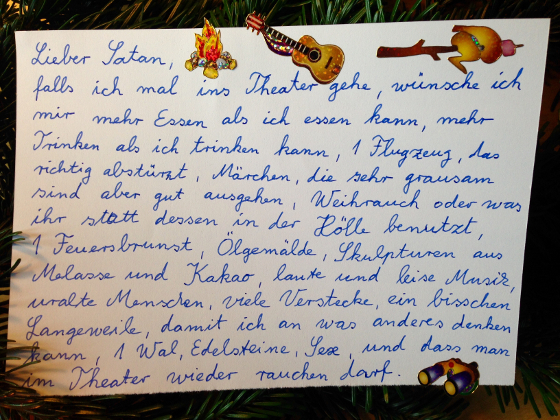 Lieber Satan,
falls ich mal ins Theater gehe, wünsche ich
mir mehr Essen als ich essen kann, mehr
Trinken als ich trinken kann, 1 Flugzeug, das
richtig abstürzt, Märchen, die sehr grausam
sind aber gut ausgehen, Weihrauch oder was
ihr statt dessen in der Hölle benutzt,
1 Feuersbrunst, Ölgemälde, Skulpturen aus
Melasse und Kakao, laute und leise Musik,
uralte Menschen, viele Verstecke, ein bisschen
Langeweile, damit ich an was anderes denken
kann, 1 Wal, Edelsteine, Sex, und dass man
im Theater wieder rauchen darf.